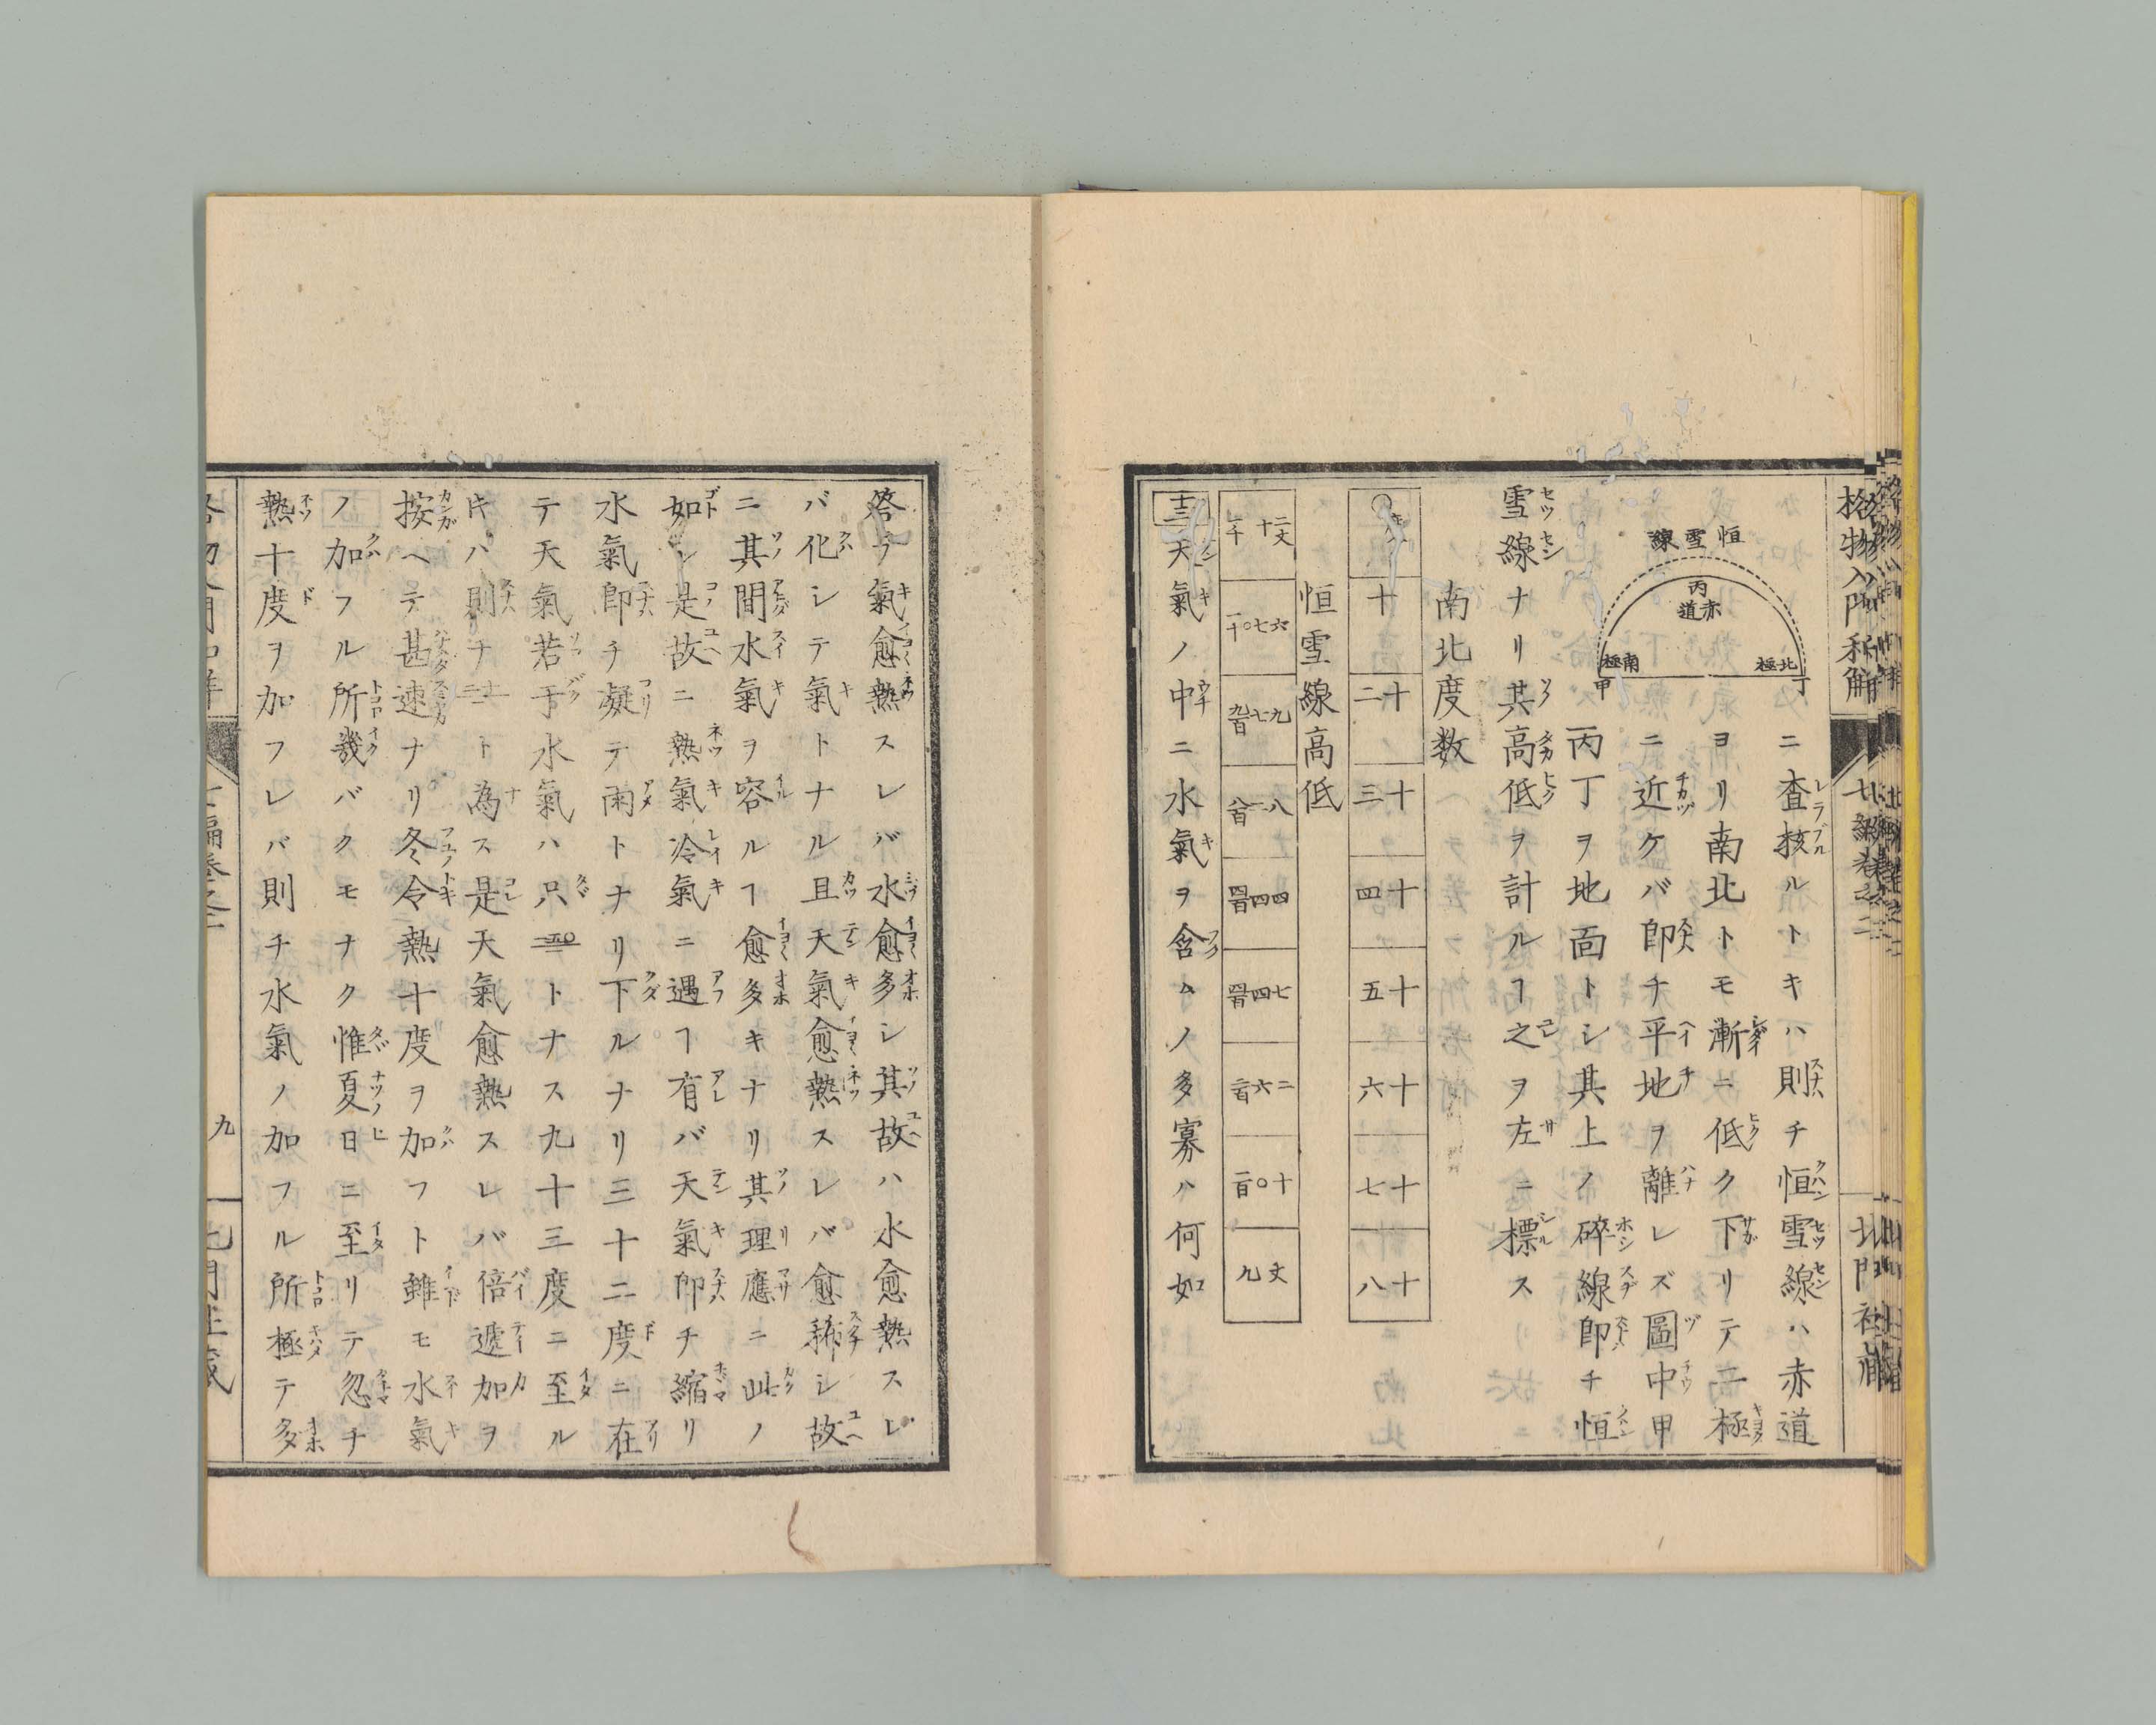 格物入門和解
七編巻之二
北門社蔵
恒雪線
丙
赤道
北極
南極
丁
甲
ニ査核ルトキハ則チ恒雪線ハ赤道
ヨリ南北トモ漸ニ低ク下リテ二極
ニ近ケバ即チ平地ヲ離レズ圖中甲
丙丁ヲ地面トシ其上ノ碎線即チ恒
雪線ナリ其高低ヲ計ルヿ之ヲ左ニ標ス
南北度数
〇
十
二十
三十
四十
五十
六十
七十
八十
恒雪線高低
十三
天氣ノ中ニ水氣ヲ含ムノ多寡ハ何如
答テ氣愈熱スレバ水愈多シ其故ハ水愈熱スレ
バ化シテ氣トナル且天氣愈熱スレバ愈稀シ故
ニ其間水氣ヲ容ルヿ愈多キナリ其理應ニ此ノ
如シ是故ニ熱氣冷氣ニ遇フヿ有バ天氣即チ縮リ
水氣即チ凝テ雨トナリ下ルナリ三十二度ニ在
テ天氣若干水氣ハ只
トナス九十三度ニ至ル
キハ則チ
ト為ス是天氣愈熱スレバ倍遞加ヲ
按ヘテ甚速ナリ冬令熱十度ヲ加フト雖モ水氣
ノ加フル所幾バクモナク惟夏日ニ至リテ忽チ
熱十度ヲ加フレバ則チ水氣ノ加フル所極テ多
九